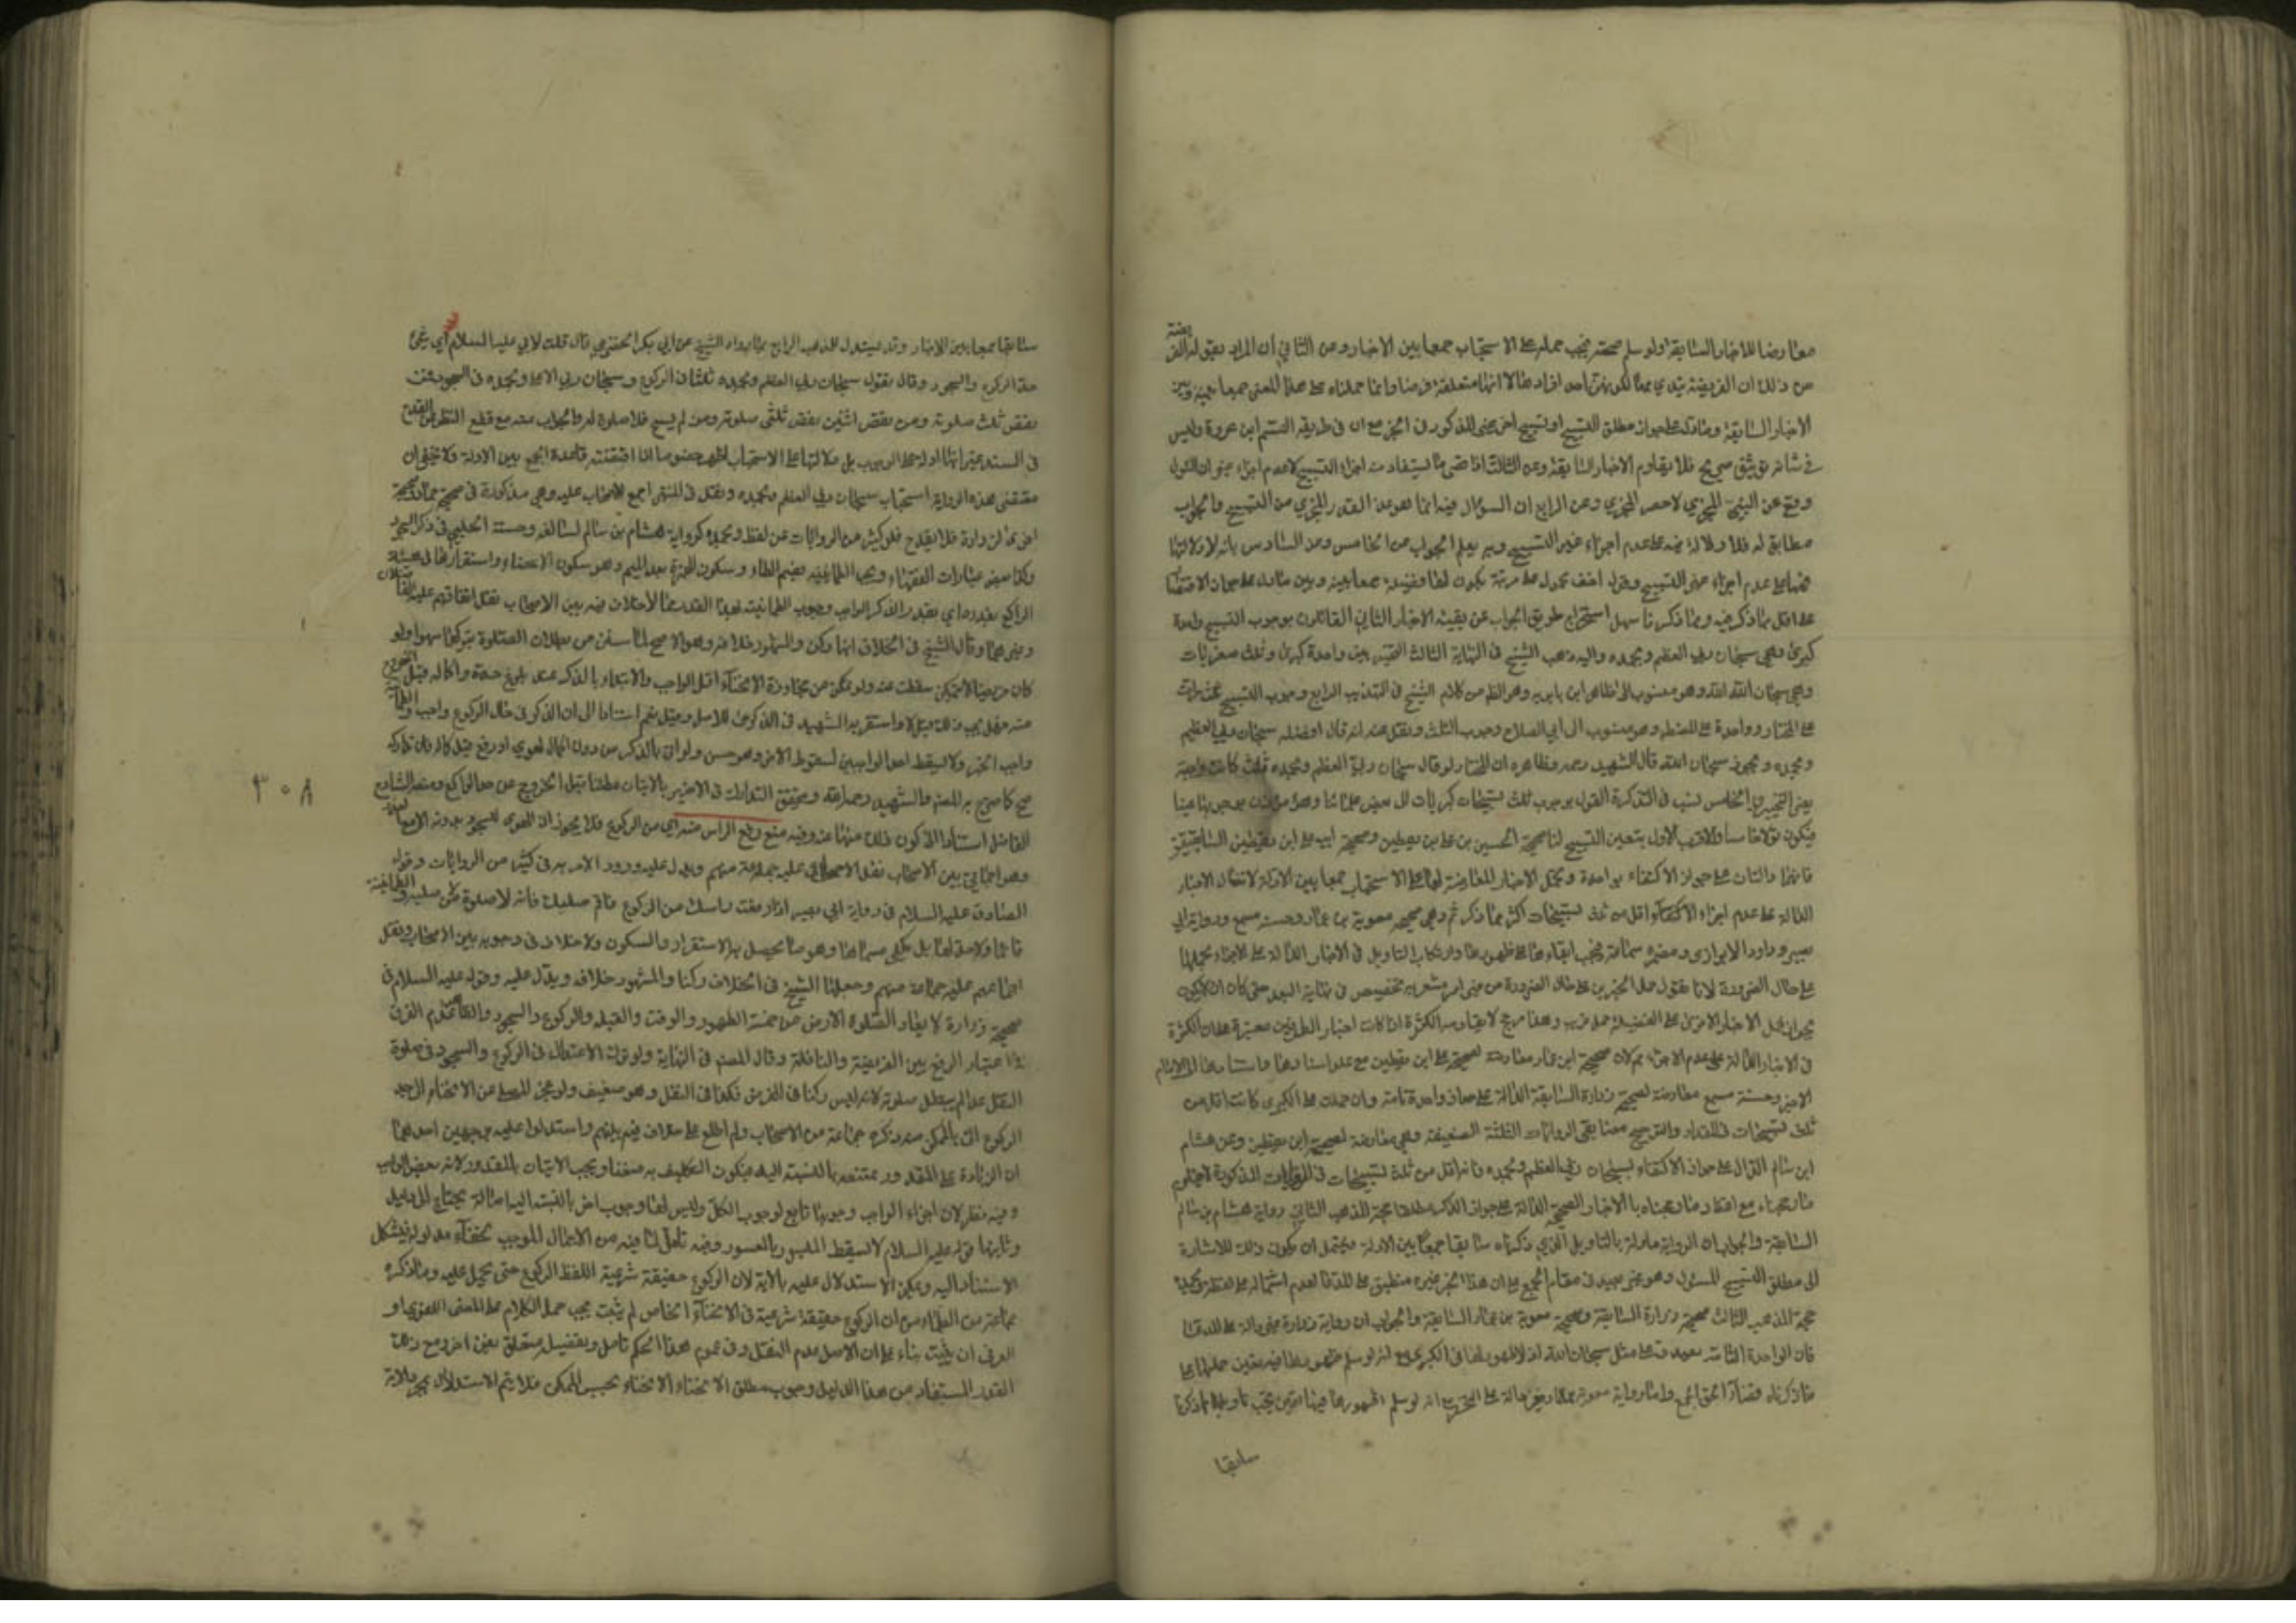 معارضا للاخبار السابقة ولو سلم صحته فيجب حمله على الاستحباب جمعا بين الاخبار وعن الثاني ان المراد بقوله الفريضة
من ذلك ان الفريضة يتادي بها لكونها احد افرادها لا انها متعلقة فرضا وانما حملناه على هذا المعنى جمعا بينه وبين
الاخبار السابقة وما دل على جواز مطلق التسبيح او تسبيح اخر غير المذكور في الخبر مع ان في طريقه القسم ابن عروة وليس
في شانه توثيق صريح فلا يقاوم الاخبار السابقة وعن الثالث اقصى ما يستفاد منه اجزاء التسبيح لا عدم اجزاء غيره ان السؤال
وقع عن المجزي لا حصر المجزي وعن الرابع ان السؤال فيه انما هو عن القدر المجزي من التسبيح والجواب
مطابق له فلا دلالة فيه على عدم اجزاء غير التسبيح وبه يعلم الجواب عن الخامس وعن السادس بانه لا دلالة
فيها على عدم اجزاء غير التسبيح وقوله اخف محمول على مرتبة يكون لها فضيلة جمعا بينه وبين ما دل على جواز الاقتصار
على اقل مما ذكر فيه ومما ذكرنا سهل استخراج طريق الجواب عن بقية الاخبار الثاني القائلون بوجوب التسبيح واحدة
كبرى وهي سبحان ربي العظيم وبحمده واليه ذهب الشيخ في النهاية الثالث التخيير بين واحدة كبرى وثلث صغريات
وهي سبحان الله الله وهو منسوب الى ظاهر ابن بابويه وهو الظ من كلام الشيخ في التهذيب الرابع وجوب التسبيح ثلث مرات
على المختار وواحدة على المضطر وهو منسوب الى ابي الصلاح وجوب الثلث ونقل عنه انه قال افضله سبحان ربي العظيم
وبحمده ويجوز سبحان الله قال الشهيد رحمه وظاهره ان المختار لو قال سبحان ربي العظيم وبحمده ثلث كانت واجبة
الخامس نسب في التذكرة القول بوجوب ثلث تسبيحات كبريات الى بعض علمائنا
فيكون قولا خامسا والاقرب الاول بتعين التسبيح لنا صحيحة الحسين بن علي بن يقطين وصحيحة ابيه علي ابن يقطين السابقتين
فانهما دالتان على جواز الاكتفاء بواحدة ويحمل الاخبار المعارضة لها على الاستحباب جمعا بين الادلة لا يقال الاخبار
الدالة على عدم اجزاء الاكتفاء اقل من ثلث تسبيحات اكثر مما ذكرتم وهي صحيحة معوية بن عمار وحسنة مسمع ورواية ابي
بصير وداود الابزاري ومضمرة سماعة فيجب ابقاءها على ظهورها وارتكاب التاويل في الاخبار الدالة على الاجزاء بحملها
على حال الضرورة لانا نقول حمل الخبرين على حال الضرورة من غير امر مشعر به تخصيص في نهاية البعد
في الاخبار الدالة على عدم الاجزاء ثم لان صحيحة ابن عمار معارضة لصحيحة علي ابن يقطين مع علو اسنادها واستنادها الى الامام
الاخير وحسنة مسمع معارضة لصحيحة زرارة السابقة الدالة على جواز واحدة تامة وان حملت على الكبرى كانت اقل من
ثلث تسبيحات في المقدار والترجيح معنا بقي الروايات الثلثة الضعيفة وهي معارضة لصحيحة ابن يقطين وعن هشام
ابن سالم الدال على جواز الاكتفاء بسبحان ربي العظيم وبحمده فانه اقل من ثلث تسبيحات في الروايات المذكورة
ما رجحناه مع اعتضاد ما رجحناه بالاخبار الصحيحة الدالة على جواز الذكر مطلقا حجة المذهب الثاني رواية هشام بن سالم
السابقة والجواب ان الرواية ماولة بالتاويل الذي ذكرناه سابقا جمعا بين الادلة ويحتمل ان يكون ذلك للاشارة
الى مطلق التسبيح المسئول وهو غير بعيد في مقام الجمع على ان هذا الخبر غيره منطبق على المدعا لعدم اشتماله على لفظة وبحمده
حجة المذهب الثالث صحيحة زرارة السابقة وصحيحة معوية بن عمار السابقة والجواب ان رواية زرارة غير دالة على المدعا
فان الواحدة التامة يصدق على مثل سبحان الله اذ لا ظهور لها في الكبرى مع انه لو سلم ظهورها فيه يتعين حملها على
ما ذكرناه قضاء لحق الجمع واما رواية معوية بن عمار فغير دالة على الحصر مع انه لو سلم ظهورها فيها يجب تاويلها بما ذكرنا
سابقا
سابقا جمعا بين الاخبار وقد يستدل للمذهب الرابع بما رواه الشيخ عن ابي بكر الحضرمي قال قلت لابي عليه السلام اي شئ
حد الركوع والسجود وقال تقول سبحان ربي العظيم وبحمده ثلثا في الركوع وسبحان ربي الاعلى وبحمده في السجود فمن
نقص ثلث صلوته ومن نقص اثنتين نقص ثلثي صلوته ومن لم يسبح فلا صلوة له والجواب عنه مع قطع النظر عن القدح
في السند غير انها ادلة على الوجوب بل دلالتها على الاستحباب اظهر خصوصا اذا اقتضته قاعدة الجمع بين الادلة ولا يخفى ان
مقتضى هذه الرواية استحباب سبحان ربي العظيم وبحمده ونقل في المنتهى اجمع الاصحاب عليه وهي مذكورة في صحيحة حماد وصحيحة
اخرى لزرارة فلا يقدح خلو كثير من الروايات عن لفظ وبحمده كرواية هشام بن سالم السالفة وحسنة الحلبي في ذكر السجود
وكذا بعض عبارات الفقهاء ويجب الطمانينة بضم الطاء وسكون الهمزة بعد الميم وهو سكون الاعضاء واستقرارها في هيئة
الراكع بقدره اي بقدر الذكر الواجب وجوب الطمانينة بهذا القدر مما لا خلاف فيه بين الاصحاب نقل اتفاقهم عليه الفاضلان
وغيرهما وقال الشيخ في الخلاف انها ركن والمشهور خلافه وهو الاصح لما سبق من بطلان الصلوة بتركها سهوا ولو
كان مريضا لا يتمكن سقطت عنه ولو تمكن من مجاوزة الانحناء اقل الواجب والابتداء بالذكر عند بلوغ حده واكماله قبل الخروج
منه فهل يجب ذلك قيل لا واستقربه الشهيد في الذكرى للاصل وقيل نعم استنادا الى ان الذكر في حال الركوع واجب والطمانينة
واجب اخر ولا يسقط احد الواجبين لسقوط الاخر وهو حسن ولو اتى بالذكر من دون اكمال الهوي او رفع قبل كماله فان تداركه
صح كما صرح به المصنف والشهيد رحمه الله ويتحقق التدارك في الاخير بالاتيان مطلقا قبل الخروج عن حد الراكع ومنعه الشارح
الفاضل استنادا الى كون ذلك منهيا عنه وفيه منع رفع الراس منه اي من الركوع فلا يجوز ان يهوى للسجود بدونه الا مع العذر
وهو اجماعي بين الاصحاب نقل الاجماع عليه جماعة منهم ويدل عليه ورود الامر به في كثير من الروايات وقوله
الصادق عليه السلام في رواية ابي بصير اذا رفعت راسك من الركوع فاقم صلبك فانه لا صلوة لمن لا يقيم صلبه والطمانينة
قائما ولا حد لها بل يكفي مسماها وهو ما يحصل به الاستقرار والسكون ولا خلاف في وجوبه بين الاصحاب ونقل
اجماعهم عليه جماعة منهم وجعلها الشيخ في الخلاف ركنا والمشهور خلافه ويدل عليه قوله عليه السلام في
صحيحة زرارة لا يعاد الصلوة الا من خمسة الطهور والوقت والقبلة والركوع والسجود والظاهر عدم الفرق
في اعتبار الرفع بين الفريضة والنافلة وقال المصنف في النهاية ولو ترك الاعتدال في الركوع والسجود في صلوة
النفل عمدا لم يبطل صلوته لانه ليس ركنا في الفرض فكذا في النفل وهو ضعيف ولو عجز المصلي عن الانحناء الى حد
الركوع اتى بالممكن منه ذكره جماعة من الاصحاب ولم اطلع على خلاف فيه بينهم واستدلوا عليه بوجهين احدهما
ان الزيادة على المقدور ممتنعة بالنسبة اليه فيكون التكليف به منفيا ويجب الاتيان بالمقدور لانه بعض الواجب
وفيه نظر لان اجزاء الواجب وجوبها تابع لوجوب الكل وليس لها وجوب اخر بالنسبة اليه اصالة يحتاج الى دليل
وثانيها قوله عليه السلام لا يسقط الميسور بالمعسور وفيه تامل لما فيه من الاجمال الموجب لخفاء مدلوله فيشكل
الاستناد اليه ويمكن الاستدلال عليه بالاية لان الركوع حقيقة شرعية اللفظ الركوع حتى يحمل عليه وما ذكره
جماعة من العلماء من ان الركوع حقيقة شرعية في الانحناء الخاص لم يثبت يجب حمل الكلام على المعنى اللغوي او
العرفي ان يثبت بناء على ان الاصل عدم النقل وفي عموم هذا الحكم تامل وتفصيل متعلق بفن اخر ومع ذلك
القدر المستفاد من هذا الدليل وجوب مطلق الانحناء لا الانحناء بحسب الممكن فلا يتم الاستدلال
٣٠٨